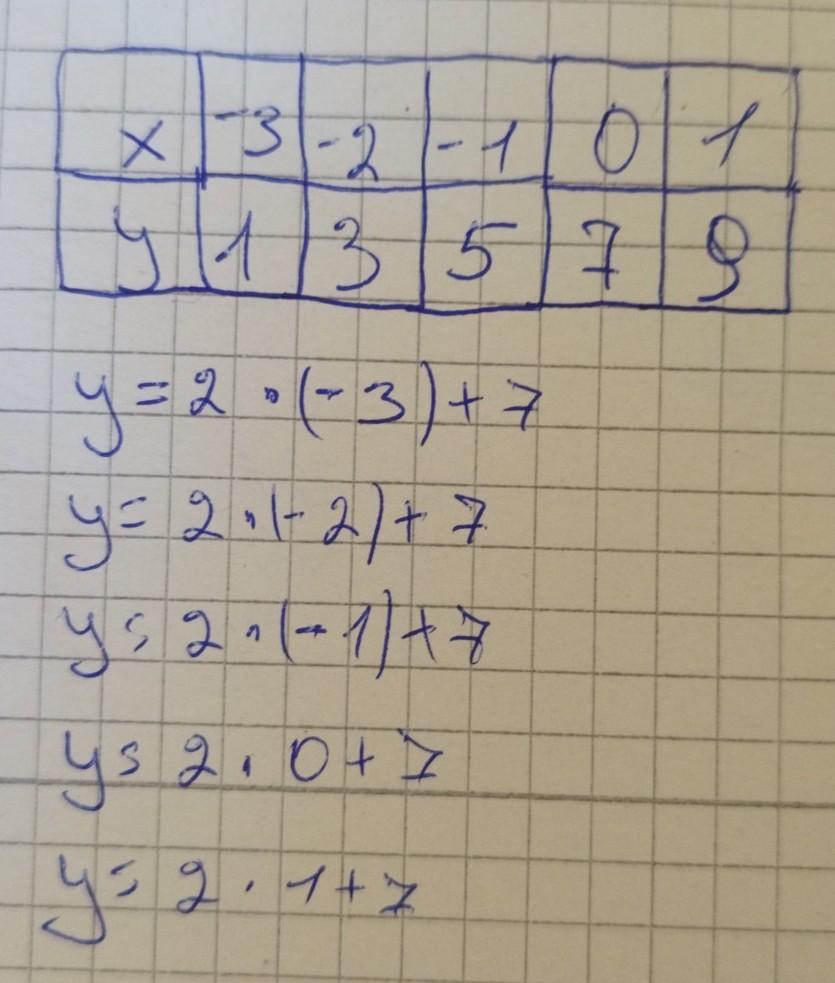 x -3 -2 -1 0 1
y 1 3 5 7 9
y = 2 · (-3) + 7
y = 2 · (-2) + 7
y = 2 · (-1) + 7
y = 2 · 0 + 7
y = 2 · 1 + 7